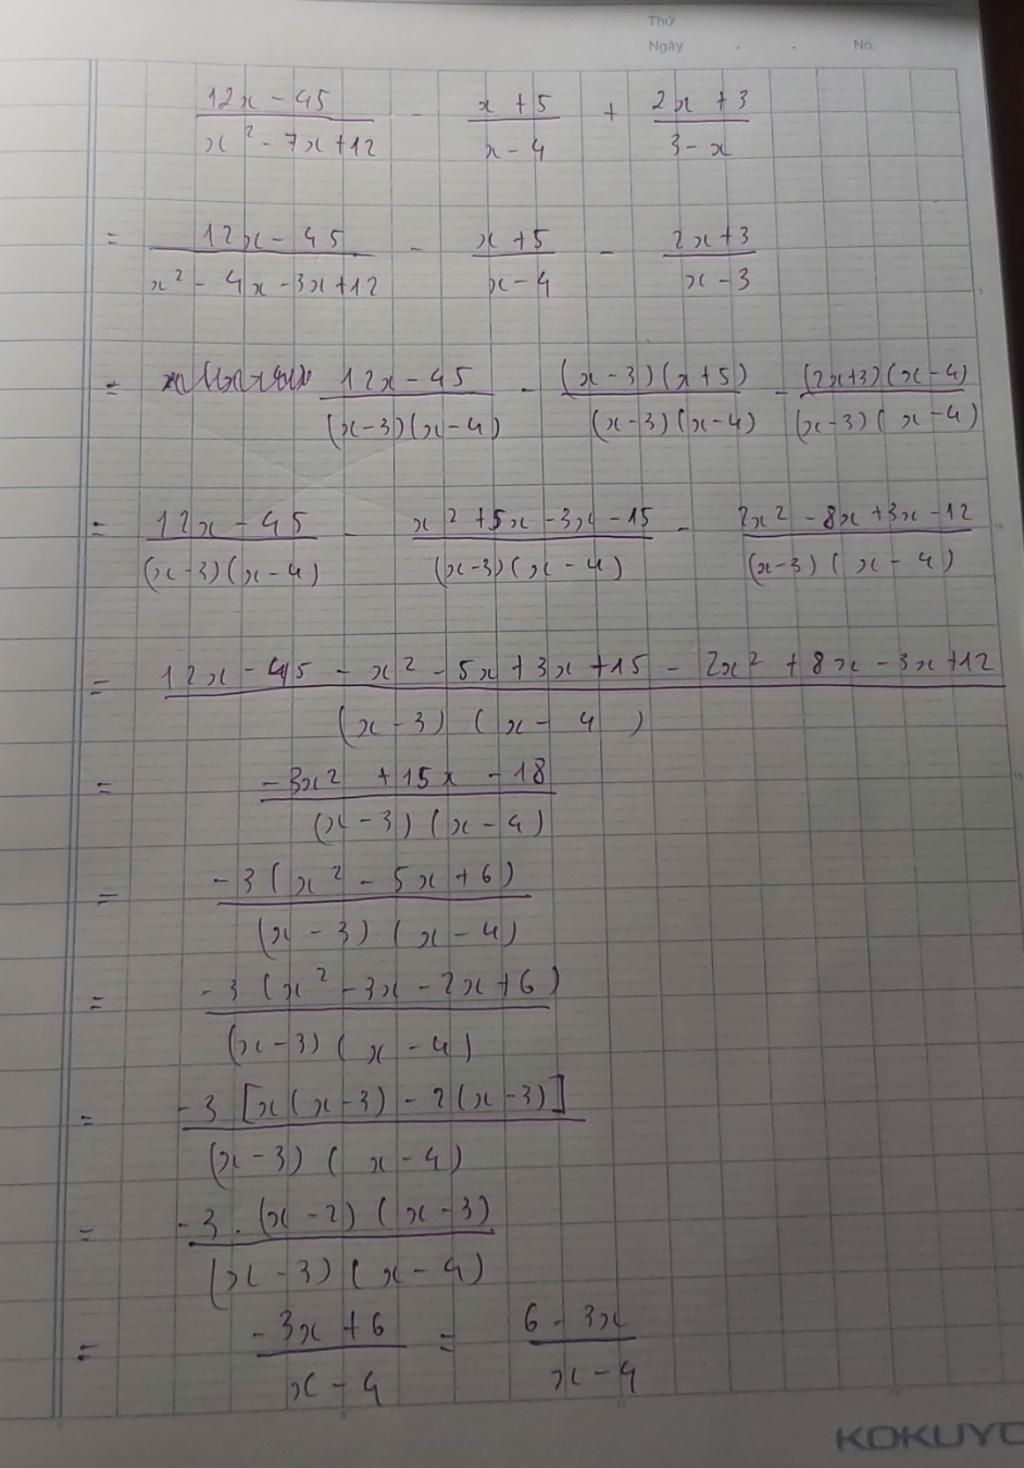 Thứ
Ngày . . No.
(12x - 45)/(x² - 7x + 12) - (x + 5)/(x - 4) + (2x + 3)/(3 - x)
= (12x - 45)/(x² - 4x - 3x + 12) - (x + 5)/(x - 4) - (2x + 3)/(x - 3)
= (12x - 45)/((x - 3)(x - 4)) - ((x - 3)(x + 5))/((x - 3)(x - 4)) - ((2x + 3)(x - 4))/((x - 3)(x - 4))
= (12x - 45)/((x - 3)(x - 4)) - (x² + 5x - 3x - 15)/((x - 3)(x - 4)) - (2x² - 8x + 3x - 12)/((x - 3)(x - 4))
= (12x - 45 - x² - 5x + 3x + 15 - 2x² + 8x - 3x + 12)/((x - 3)(x - 4))
= (-3x² + 15x - 18)/((x - 3)(x - 4))
= (-3(x² - 5x + 6))/((x - 3)(x - 4))
= (-3(x² - 3x - 2x + 6))/((x - 3)(x - 4))
= (-3[x(x - 3) - 2(x - 3)])/((x - 3)(x - 4))
= (-3 . (x - 2)(x - 3))/((x - 3)(x - 4))
= (-3x + 6)/(x - 4) = (6 - 3x)/(x - 4)
KOKUYO